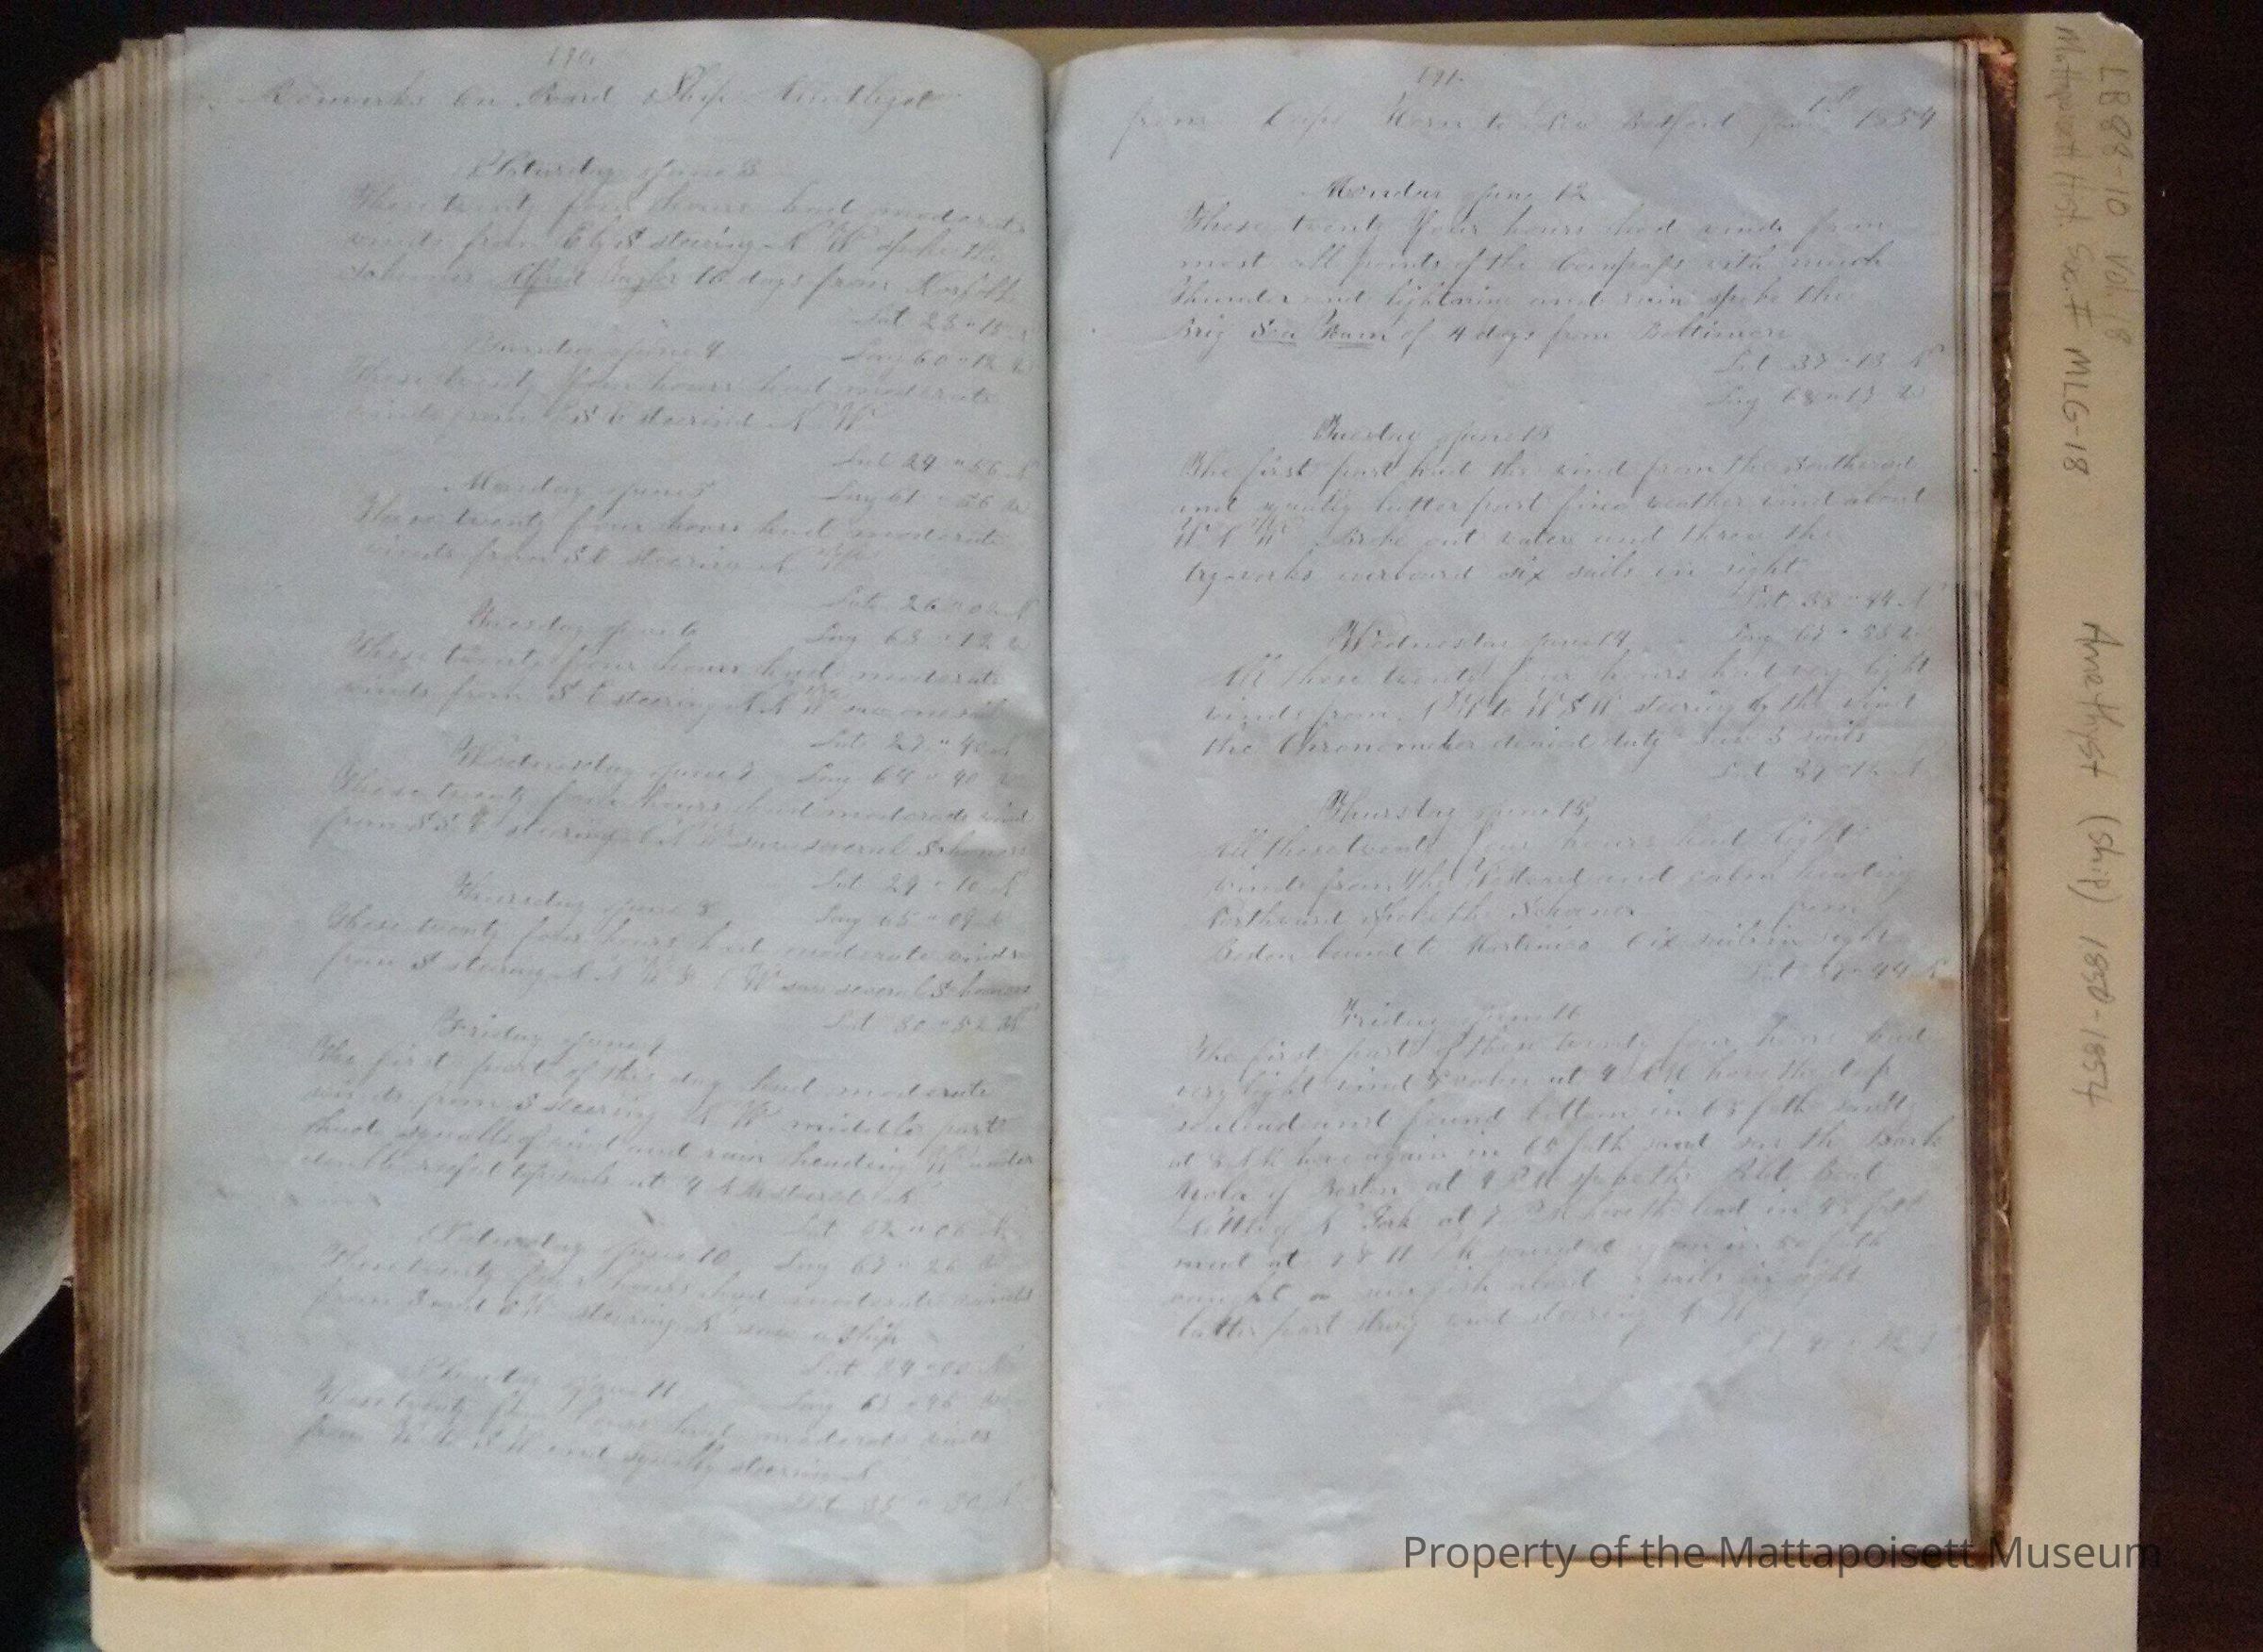 190
Remarks on Board Ship Amethyst
Saturday June 3
These twenty four hours had moderate
winds from E by S steering N W spoke the
Schooner Alfred 16 days from Norfolk
Lat 23 " 15 N
Sunday June 4
Long 60 " 12 W
These twenty four hours had moderate
winds from steerind N W
Lat 24 " 56 N
Monday June 5
Long 61 " 56 W
These twenty four hours had moderate
winds from S E steering N W
Lat 26 " 02 N
Tuesday June 6
Long 63 " 12 W
These twenty four hours had moderate
winds from S E steering N N W saw one sail
Lat 27 " 40 N
Wednesday June 7
Long 64 " 40 W
These twenty four hours had moderate wind
from S S E steering N N W saw several Schooners
Lat 29 " 10 N
Thursday June 8
Long 65 " 09 W
These twenty four hours had moderate winds
from S steering N N W & N W saw several Schooners
Lat 30 " 52 N
Friday June 9
The first part of this day had moderate
winds from S steering N W middle part
had squalls of wind and rain heading W under
double reefed topsails at 4 A M steered N
Lat 32 " 06 N
Saturday June 10
Long 67 " 26 W
These twenty four hours had moderate winds
from S and steering N saw a Ship
Lat 34 " 00 N
Sunday June 11
Long 67 " 46 W
These twenty four hours had moderate winds
from W S W and squally steering N
Lat 35 " 30 N
191
from Cape Horn to New Bedford June 1854
Monday June 12
These twenty four hours had winds from
most all points of the Compass with much
thunder and lightning and rain spoke the
Brig Sea of 4 days from Baltimore
Lat 37 " 13 N
Long 68 " 13 W
Tuesday June 13
The first part had the wind from the Southward
and squally latter part fine weather wind about
W N W Broke out water and threw the
tryworks overboard six sails in sight
Lat 38 " 44 N
Wednesday June 14
Long 67 " 38 W
All these twenty four hours had very light
winds from to W S W steering by the wind
the Chronometer denied duty saw 3 sails
Lat N
Thursday June 15
All these twenty four hours had light
winds from the Westward and calm heading
Northward Spoke the Schooner from
Boston bound to Martinico six sails in sight
Lat 44 N
Friday June 16
The first part of these twenty four hours had
very light wind & calm at 4 A M hove the deep
sea lead and found bottom in 65 fath sand
at 8 A M hove again in 65 fath sand saw the Bark
of Boston at 4 P M spoke the Pilot Boat
of N York at 7 P M hove the lead in 45 fath
mud at sounded again in fath
caught a sunfish about sails in sight
latter part strong wind steering N W
Lat
LB88-10 Vol. 18
Mattapoisett Hist. Soc. # MLG-18
Amethyst (Ship) 1850-1854
Property of the Mattapoisett Museum